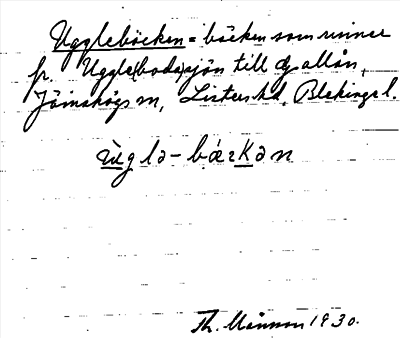 Ugglebäcken = bäcken som rinner
fr. Uggle(boda)sjön till
Jämshögs sn, Listers hd, Blekinge l.
ùglə-bǽckən
Th. Månsson 1930.